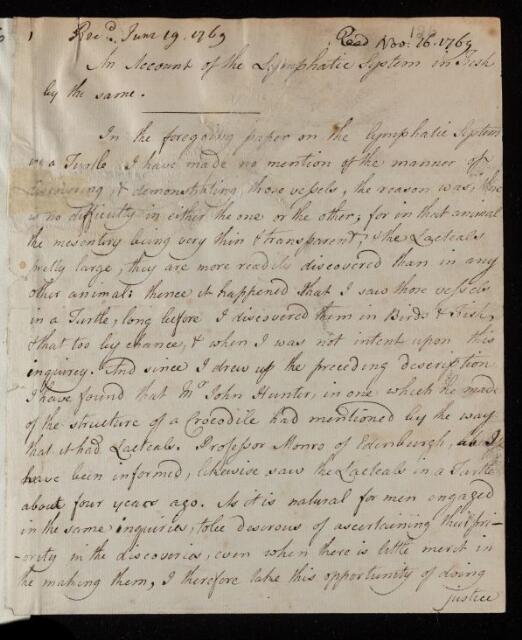 1 Rec.d June 19. 1769 Read Nov: 16. 1769
An Account of the Lymphatic System in Fish
by the same.
In the foregoing paper on the Lymphatic System
in a Turtle I have made no mention of the manner of
discovering, & demonstrating those vessels, the reason was, there
is no difficulty in either the one or the other; for in that animal
the mesentery being very thin & transparent, & the Lacteals
pretty large, they are more readily discovered than in any
other animal: thence it happened that I saw those vessels
in a Turtle, long before I discovered them in Birds & Fish,
& that too by chance, & when I was not intent upon this
inquirey. And since I drew up the preceding description
I have found that Mr. John Hunter, in one which he made
of the structure of a Crocodile had mentioned by the way
that it had Lacteals. Professor Monro of Edinburgh, as I
have been informed, likewise saw the Lacteals in a Turtle
about four years ago. As it is natural for men engaged
in the same inquiries, to be desirous of ascertaining their pri-
-ority in the discoveries, even when there is little merit in
the making them, I therefore take this opportunity of doing
justice